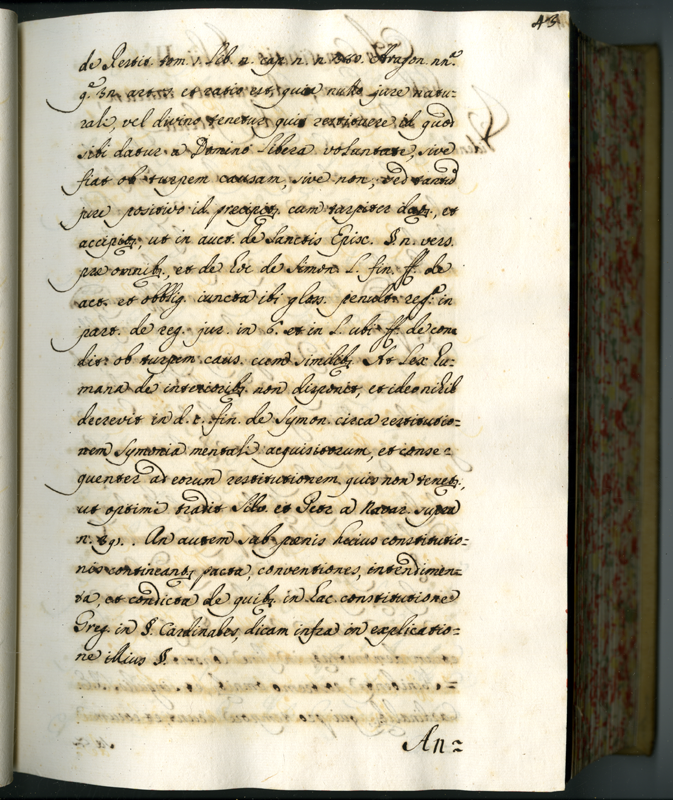 43
de Restit tom. 1. lib. 2. cap. n. n. Aragon
art. et ratio est, quia nullo jure natu=
rali, vel divino tenetur quis restituere id quod
sibi datur a Domino libera voluntate, sive
fiat ob turpem causam, sive non, sed tantũ
jure positivo id precipitꝫ cum turpiter datꝫ, et
accipitꝫ, ut in auct. de Sanctis Episc. § n. vers.
præ omnibꝫ, et de Simon. L. fin. ff. de
act. et obblig. iuncta ibi glos. penult. reg. in
part. de reg. jur. in 6. et in L. ubi ff. de con
dit: ob turpem caus. cum similibꝫ At Lex hu=
mana de interioribꝫ non disponit, et ideo nihil
decrevit in d. c. fin. de Symon. circa restitutio=
nem Symonia mentali acquisitorum, et conse=
quenter ad eorum restitutionem quis non tenetꝫ,
ut optime tradit et Petr. a Navar. supra
n. . An autem sub pœnis huius constitutio=
nis contineantꝫ pacta, conventiones, intendimen=
ta, et condicta de quibꝫ in hac constitutione
Greg. in §. Cardinales, dicam infra in explicatio=
ne illius §.
An=